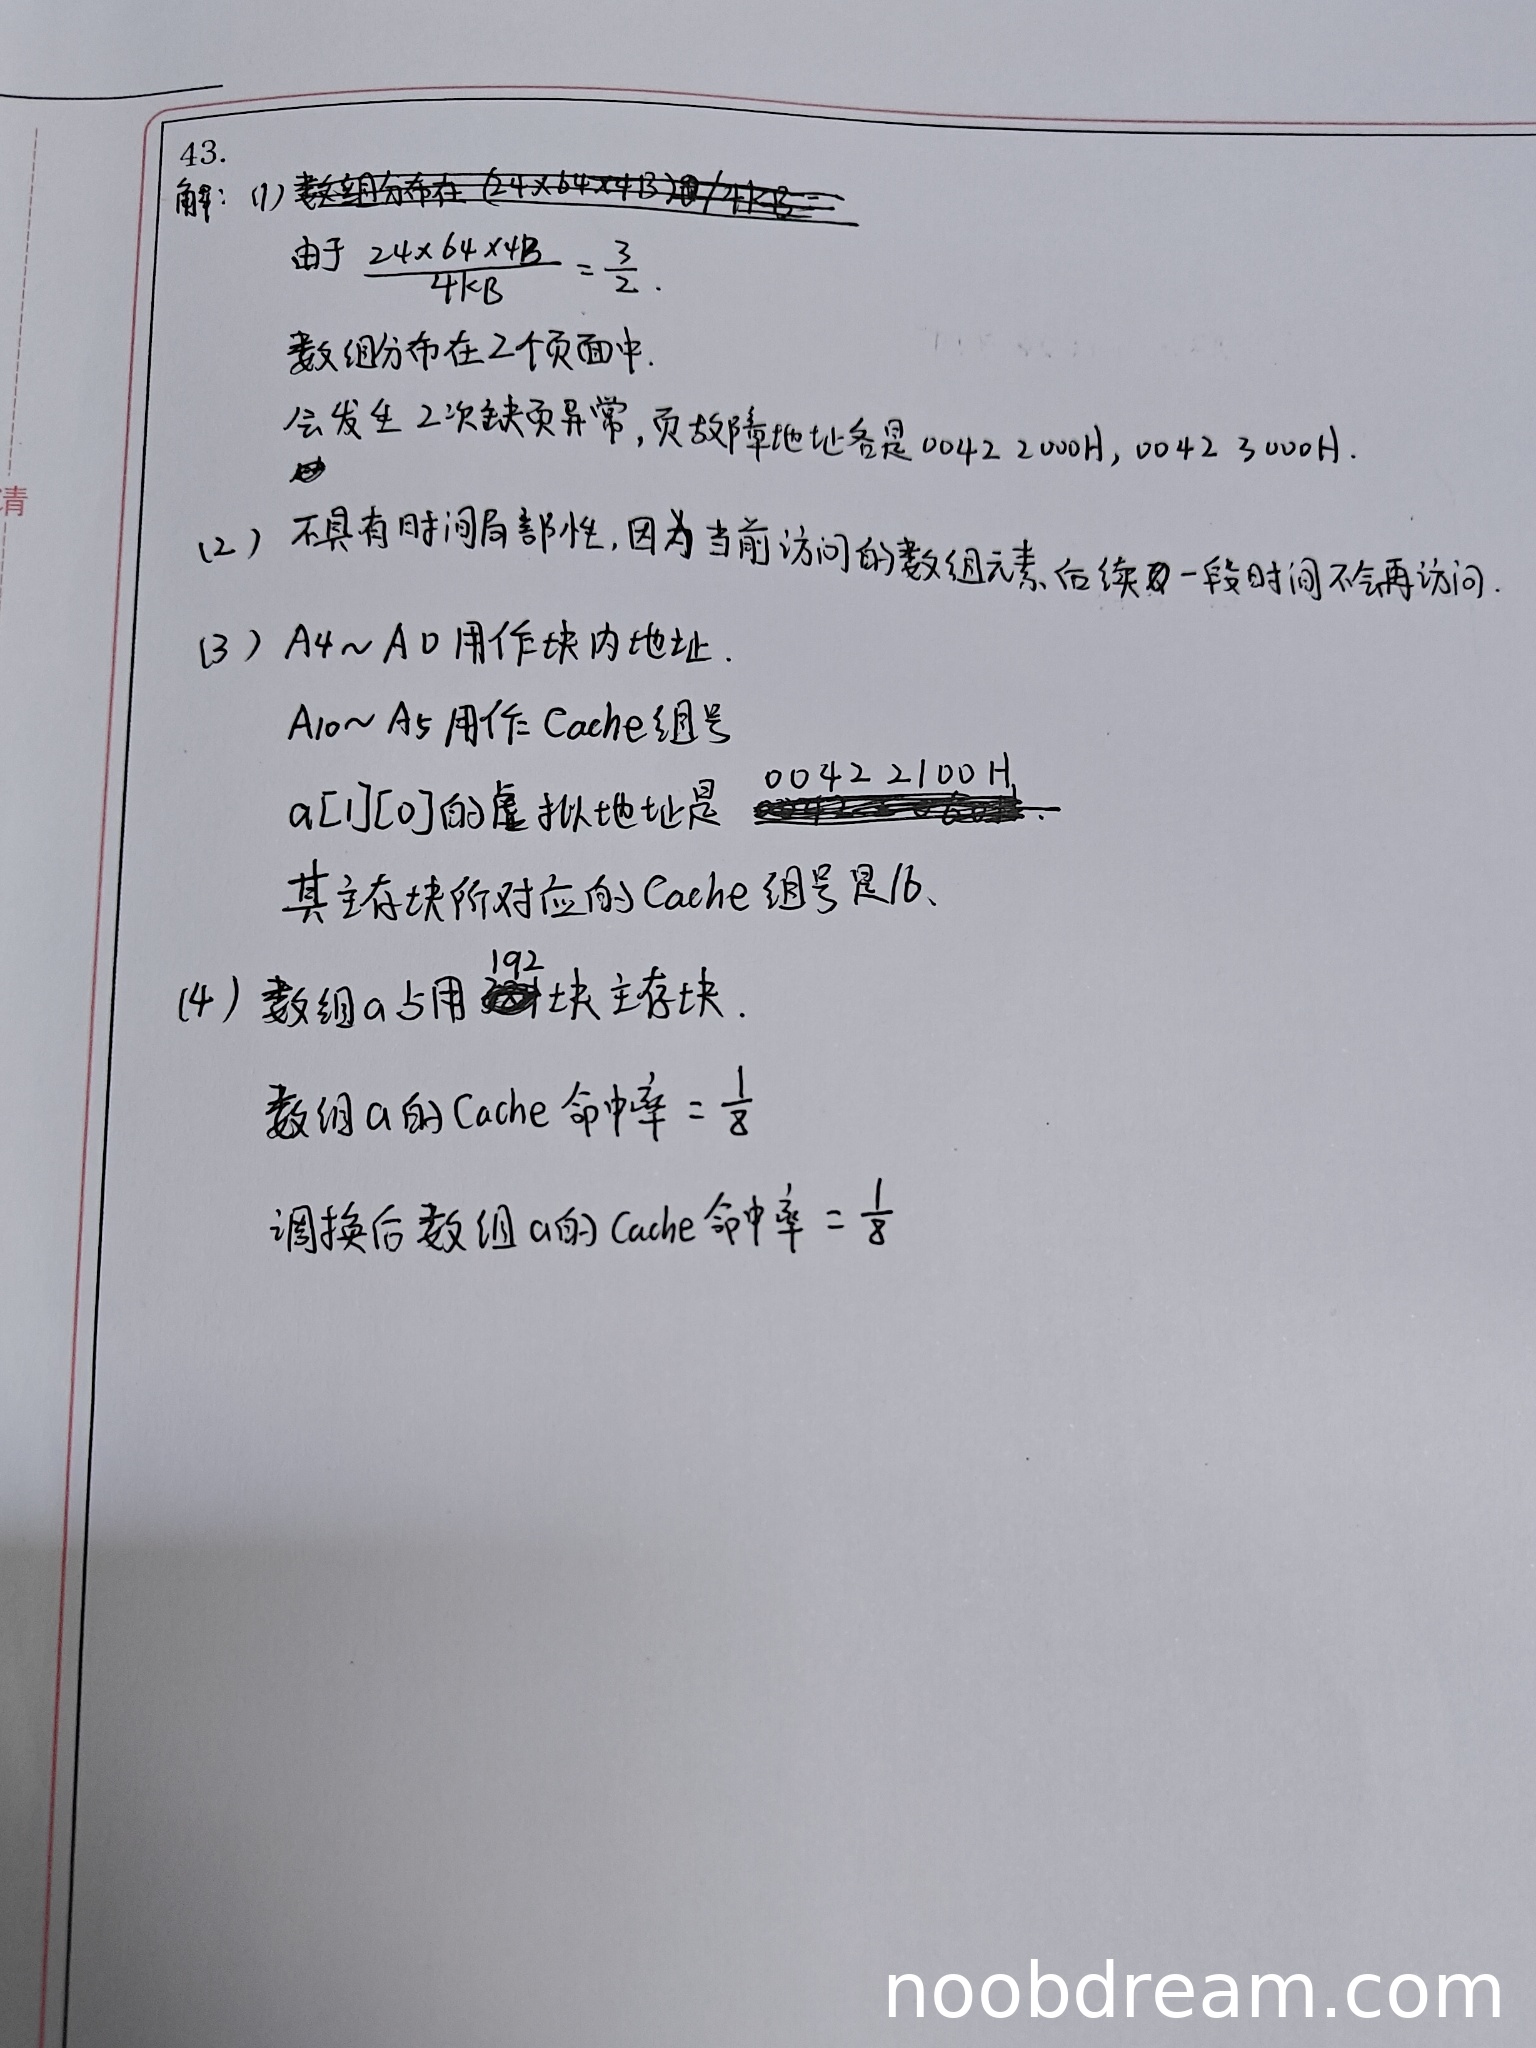 43.
解：(1) 数组分布在 (24×64×4B)/4KB =
由于 24×64×4B / 4KB = 3/2.
数组分布在2个页面中.
会发生2次缺页异常,页故障地址各是00422000H,00423000H.
青
(2) 不具有时间局部性,因为当前访问的数组元素后续一段时间不会再访问.
(3) A4~A0用作块内地址.
A10~A5用作Cache组号
a[1][0]的虚拟地址是 00422100H,
其主存块所对应的Cache组号是16、
(4) 数组a占用192块主存块.
数组a的Cache命中率 = 1/8
调换后数组a的Cache命中率 = 1/8
noobdream.com